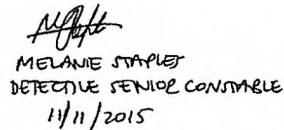 MELANIE STAPLES
DETECTIVE SENIOR CONSTABLE
11/11/2015